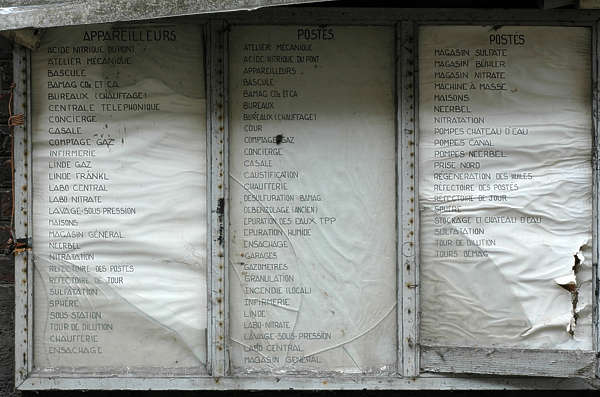 APPAREILLEURS
ACIDE NITRIQUE DU PONT
ATELIER MÉCANIQUE
BASCULE
BAMAG CO₂ ET CA
BUREAUX (CHAUFFAGE)
CENTRALE TELEPHONIQUE
CONCIERGE
CASALE
COMPTAGE GAZ
INFIRMERIE
LINDE GAZ
LINDE FRÄNKL
LABO CENTRAL
LABO NITRATE
LAVAGE-SOUS-PRESSION
MAISONS
MAGASIN GÉNÉRAL
NEERBEL
NITRATATION
REFECTOIRE DES POSTES
REFECTOIRE DE JOUR
SULFATATION
SPHÈRE
SOUS STATION
TOUR DE DILUTION
CHAUFFERIE
ENSACHAGE
POSTES
ATELIER MÉCANIQUE
ACIDE NITRIQUE DU PONT
APPAREILLEURS
BASCULE
BAMAG CO₂ ET CA
BUREAUX
BUREAUX (CHAUFFAGE)
COUR
COMPTAGE GAZ
CONCIERGE
CASALE
CAUSTIFICATION
CHAUFFERIE
DÉSULFURATION BAMAG
DEBENZOLAGE (ANCIEN)
EPURATION DES EAUX TPP
EPURATION HUMIDE
ENSACHAGE
GARAGES
GAZOMÈTRES
GRANULATION
INCENDIE (LOCAL)
INFIRMERIE
LINDE
LABO-NITRATE
LAVAGE-SOUS-PRESSION
LABO CENTRAL
MAGASIN GÉNÉRAL
POSTES
MAGASIN SULFATE
MAGASIN BÜHLER
MAGASIN NITRATE
MACHINE À MASSE
MAISONS
NEERBEL
NITRATATION
POMPES CHATEAU D'EAU
POMPES CANAL
POMPES NEERBEL
PRISE NORD
RÉGÉNERATION DES HUILES
RÉFECTOIRE DES POSTES
REFECTOIRE DE JOUR
SPHÈRE
STOCKAGE CL CHATEAU D'EAU
SULFATATION
TOUR DE DILUTION
TOURS DEMAG